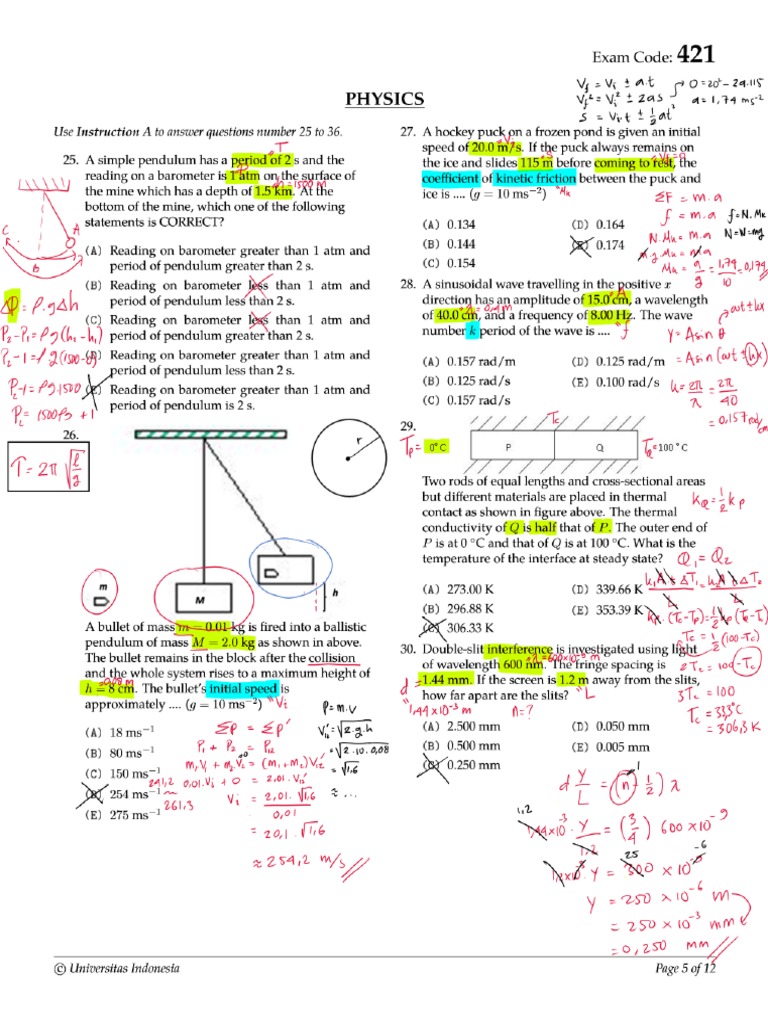 Exam Code: 421
PHYSICS
V_f = V_i ± a.t
V_f² = V_i² ± 2as
s = V_i.t ± ½at²
0 = 20² – 2a.115
a = 1,74 ms⁻²
Use Instruction A to answer questions number 25 to 36.
T
25. A simple pendulum has a period of 2 s and the
reading on a barometer is 1 atm on the surface of
the mine which has a depth of 1.5 km. At the
= 1500 m
bottom of the mine, which one of the following
statements is CORRECT?
(A) Reading on barometer greater than 1 atm and
period of pendulum greater than 2 s.
(B) Reading on barometer less than 1 atm and
period of pendulum less than 2 s.
(C) Reading on barometer less than 1 atm and
period of pendulum greater than 2 s.
(D) Reading on barometer greater than 1 atm and
period of pendulum less than 2 s.
(E) Reading on barometer greater than 1 atm and
period of pendulum is 2 s.
C
A
R
B
ΔP = ρ.gΔh
P₂–P₁ = ρg(h₂–h₁)
P₂–1 = ρg(1500–0)
P₂–1 = ρg.1500
P₂ = 1500ρg + 1
26.
T = 2π√(l/g)
r
m
M
h
A bullet of mass m = 0.01 kg is fired into a ballistic
pendulum of mass M = 2.0 kg as shown in above.
The bullet remains in the block after the collision
and the whole system rises to a maximum height of
= 0,08 m
h = 8 cm. The bullet's initial speed is
approximately .... (g = 10 ms⁻²)
"Vi
(A) 18 ms⁻¹
(B) 80 ms⁻¹
(C) 150 ms⁻¹
(D) 254 ms⁻¹
(E) 275 ms⁻¹
241,2
261,3
Σp = Σp'
P₁ + P₂ = P₁₂
m₁V₁ + m₂V₂ = (m₁+m₂)V₁₂'
0,01.Vi + 0 = 2,01.V₁₂'
Vi = 2,01.√1,6
0,01
= 20,1.√1,6
≈ 254,2 m/s
p = m.v
V₁₂' = √2.g.h
= √2.10.0,08
= √1,6
≈ ...
27. A hockey puck on a frozen pond is given an initial
speed of 20.0 m/s. If the puck always remains on
the ice and slides 115 m before coming to rest, the
coefficient of kinetic friction between the puck and
ice is .... (g = 10 ms⁻²)
"μk
(A) 0.134
(B) 0.144
(C) 0.154
(D) 0.164
(E) 0.174
ΣF = m.a
f = m.a
f = N.μk
N.μk = m.a
N = W = mg
m.g.μk = m.a
μk = a/g = 1,74/10 = 0,174
28. A sinusoidal wave travelling in the positive x
direction has an amplitude of 15.0 cm, a wavelength
of 40.0 cm, and a frequency of 8.00 Hz. The wave
number k period of the wave is ....
(A) 0.157 rad/m
(B) 0.125 rad/s
(C) 0.157 rad/s
(D) 0.125 rad/m
(E) 0.100 rad/s
ωt ± kx
y = A sin θ
= A sin(ωt ± kx)
k = 2π/λ = 2π/40
= 0,157 rad/cm
29.
Tc
Tp = 0°C
P
Q
TQ = 100 °C
Two rods of equal lengths and cross-sectional areas
but different materials are placed in thermal
contact as shown in figure above. The thermal
conductivity of Q is half that of P. The outer end of
P is at 0 °C and that of Q is at 100 °C. What is the
temperature of the interface at steady state?
(A) 273.00 K
(B) 296.88 K
(C) 306.33 K
(D) 339.66 K
(E) 353.39 K
kQ = ½ kp
Q₁ = Q₂
k₁A ΔT₁ = k₂A ΔT₂
kp.(Tc–Tp) = ½kp(TQ–Tc)
Tc = ½(100–Tc)
2Tc = 100–Tc
3Tc = 100
Tc = 33,3°C
= 306,3 K
30. Double-slit interference is investigated using light
of wavelength 600 nm. The fringe spacing is
1.44 mm. If the screen is 1.2 m away from the slits,
how far apart are the slits?
(A) 2.500 mm
(B) 0.500 mm
(C) 0.250 mm
(D) 0.050 mm
(E) 0.005 mm
λ = 600×10⁻⁹ m
d =
1,44×10⁻³ m
n = ?
"L
d y/L = (n – ½) λ
1
1,2
1,44×10⁻³ . y/1,2 = (3/4) 600×10⁻⁹
25
-6
1,2×10⁻³ . y = 300 × 10⁻⁹
y = 250 × 10⁻⁶ m
= 250 × 10⁻³ mm
= 0,250 mm
© Universitas Indonesia
Page 5 of 12